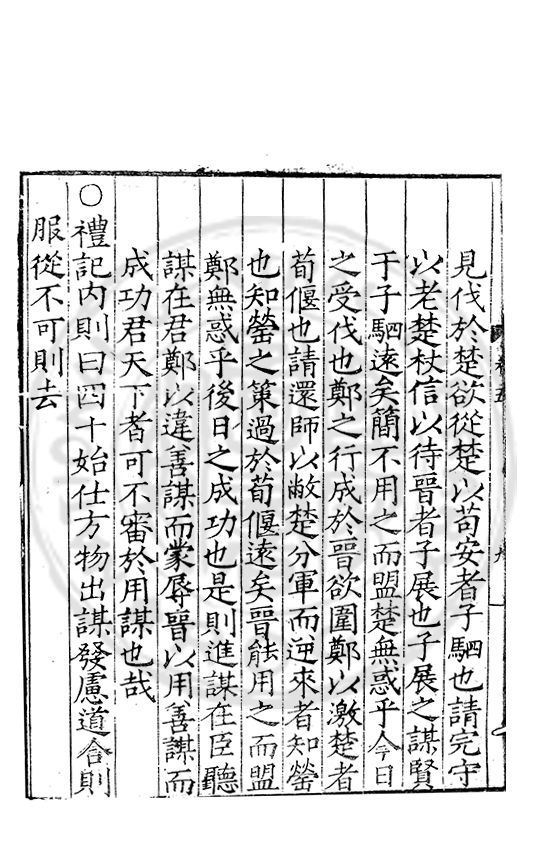 見伐於楚欲從楚以苟安者子駟也請完守
以老楚杖信以待晉者子展也子展之謀賢
于子駟遠矣簡不用之而盟楚無惑乎今日
之受伐也鄭之行成於晉欲圍鄭以激楚者
荀偃也請還師以敝楚分軍而逆來者知罃
也知罃之策過於荀偃遠矣晉能用之而盟
鄭無惑乎後日之成功也是則進謀在臣聽
謀在君鄭以違善謀而蒙辱晉以用善謀而
成功君天下者可不審於用謀也哉
○禮記内則曰四十始仕方物出謀發慮道合則
服從不可則去